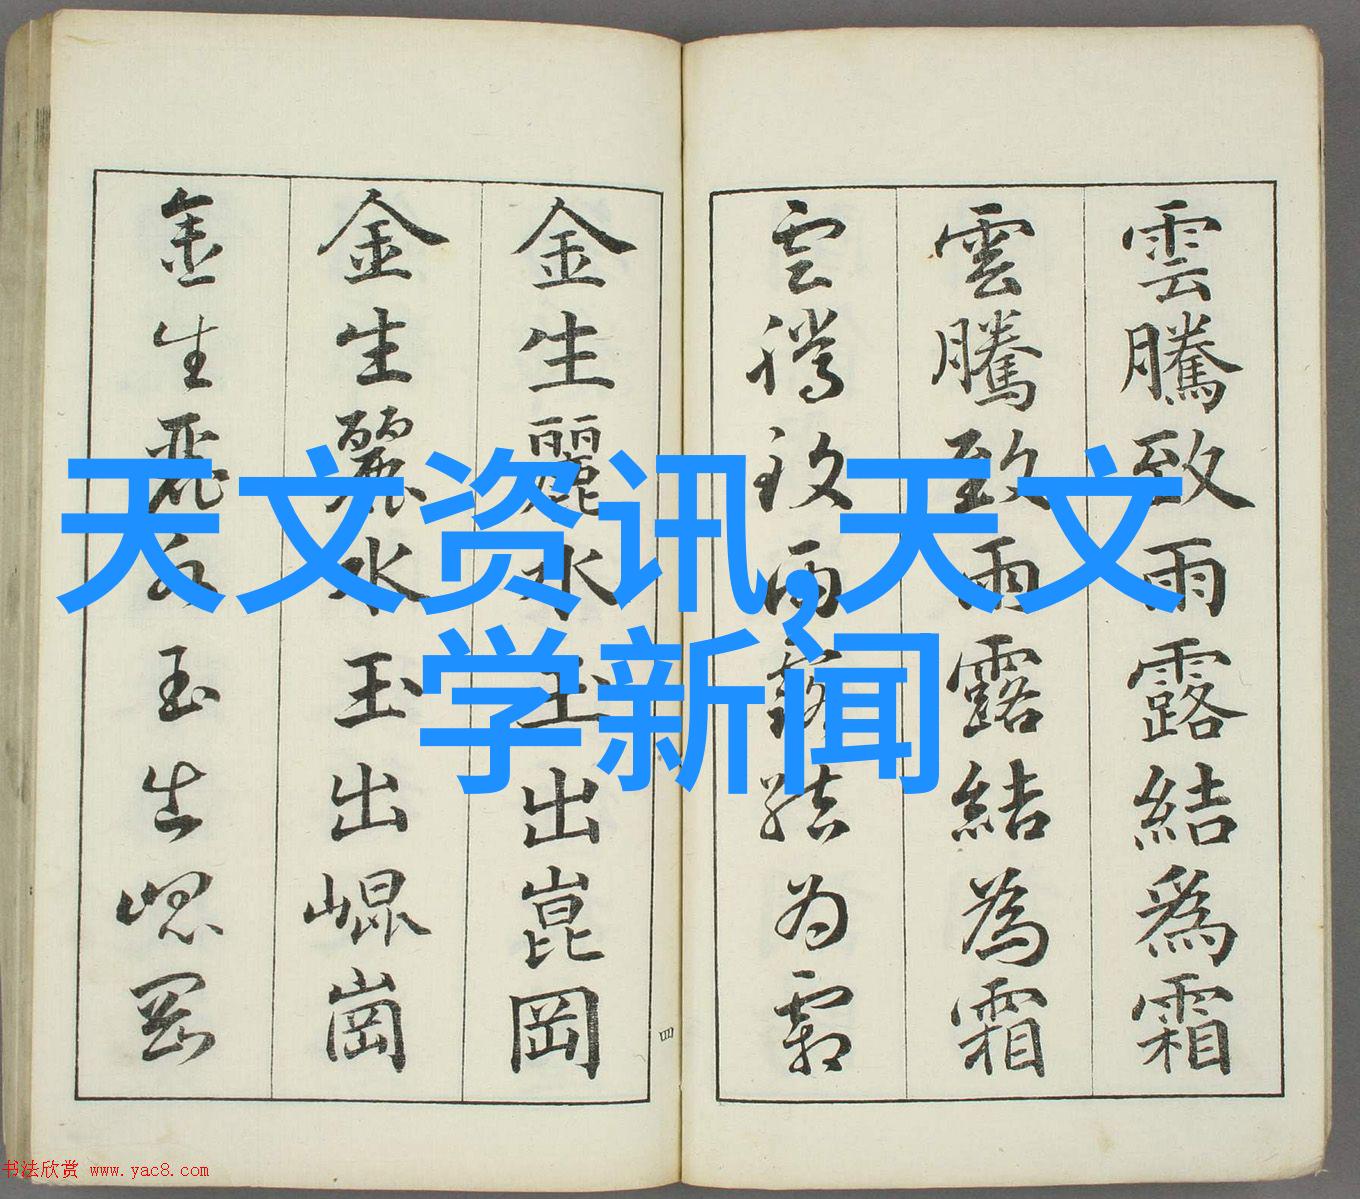 雲騰致雨露結爲霜
雲騰致雨露結為霜
雲騰致雨露結为霜
金生麗水玉出崑岡
金生麗水玉出崐崗
金生麗水玉出崐岡
四
天文资讯,天文
学新闻
书法欣赏 www.yac8.com